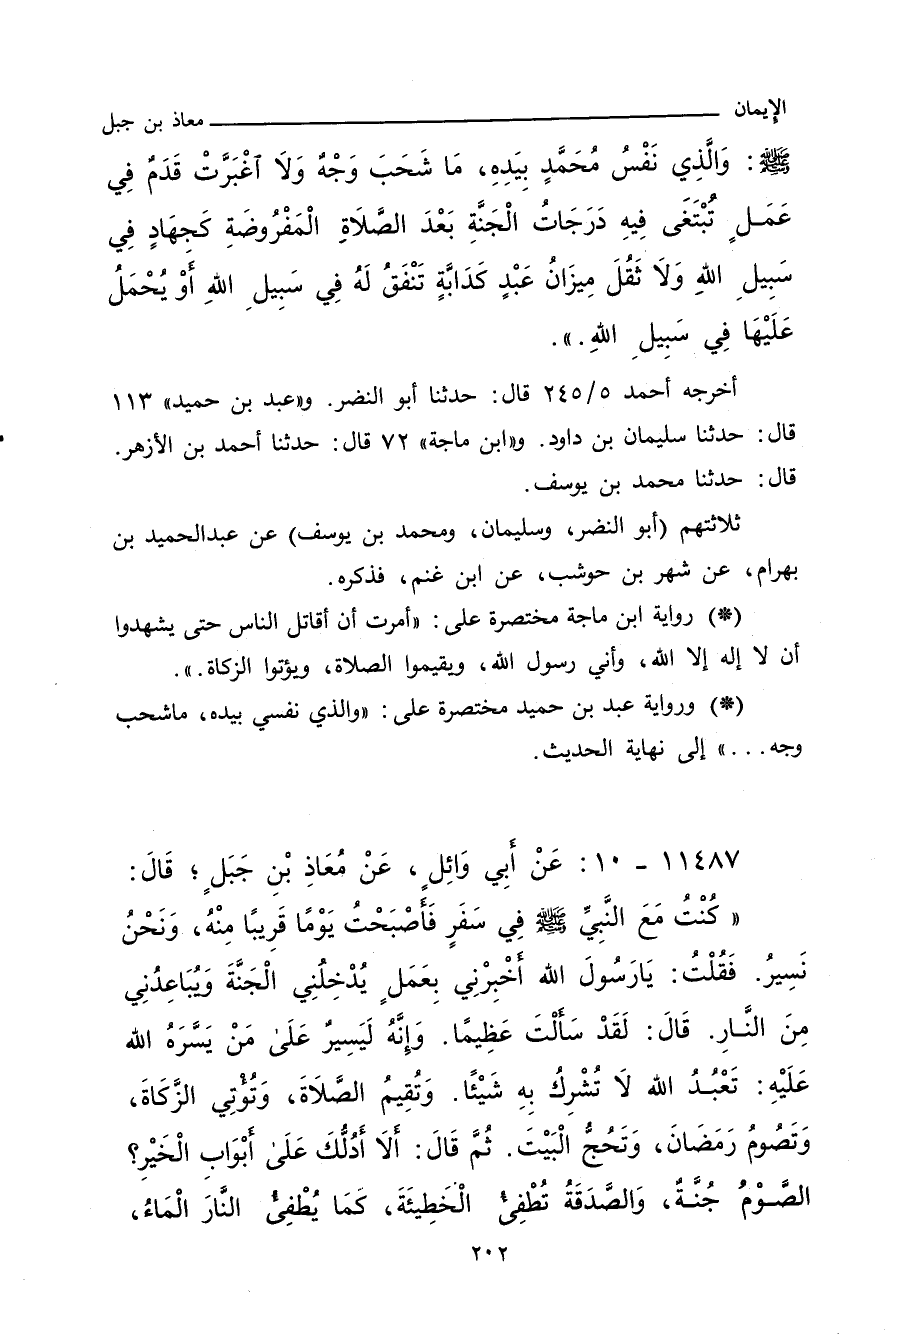 الإيمان ــــــــــــــــ معاذ بن جبل
ﷺ: وَالَّذِي نَفْسُ مُحَمَّدٍ بِيَدِهِ، مَا شَحَبَ وَجْهٌ وَلَا اَغْبَرَّتْ قَدَمٌ فِي
عَمَلٍ تُبْتَغَى فِيهِ دَرَجَاتُ الْجَنَّةِ بَعْدَ الصَّلَاةِ الْمَفْرُوضَةِ كَجِهَادٍ فِي
سَبِيلِ اللهِ وَلَا ثَقُلَ مِيزَانُ عَبْدٍ كَدَابَّةٍ تَنْفَقُ لَهُ فِي سَبِيلِ اللهِ أَوْ يُحْمَلُ
عَلَيْهَا فِي سَبِيلِ اللهِ.».
أخرجه أحمد ٢٤٥/٥ قال: حدثنا أبو النضر. و«عبد بن حميد» ١١٣
قال: حدثنا سليمان بن داود. و«ابن ماجة» ٧٢ قال: حدثنا أحمد بن الأزهر.
قال: حدثنا محمد بن يوسف.
ثلاثتهم (أبو النضر، وسليمان، ومحمد بن يوسف) عن عبدالحميد بن
بهرام، عن شهر بن حوشب، عن ابن غنم، فذكره.
(*) رواية ابن ماجة مختصرة على: «أمرت أن أقاتل الناس حتى يشهدوا
أن لا إله إلا الله، وأني رسول الله، ويقيموا الصلاة، ويؤتوا الزكاة.».
(*) ورواية عبد بن حميد مختصرة على: «والذي نفسي بيده، ماشحب
وجه...» إلى نهاية الحديث.
١١٤٨٧ - ١٠: عَنْ أَبِي وَائِلٍ، عَنْ مُعَاذِ بْنِ جَبَلٍ؛ قَالَ:
« كُنْتُ مَعَ النَّبِيِّ ﷺ فِي سَفَرٍ فَأَصْبَحْتُ يَوْمًا قَرِيبًا مِنْهُ، وَنَحْنُ
نَسِيرُ. فَقُلْتُ: يَارَسُولَ الله أَخْبِرْنِي بِعَمَلٍ يُدْخِلُنِي الْجَنَّةَ وَيُبَاعِدُنِي
مِنَ النَّارِ. قَالَ: لَقَدْ سَأَلْتَ عَظِيمًا. وَإِنَّهُ لَيَسِيرٌ عَلَىٰ مَنْ يَسَّرَهُ الله
عَلَيْهِ: تَعْبُدُ الله لَا تُشْرِكُ بِهِ شَيْئًا. وَتُقِيمُ الصَّلَاةَ، وَتُؤْتِي الزَّكَاةَ،
وَتَصُومُ رَمَضَانَ، وَتَحُجُّ الْبَيْتَ. ثُمَّ قَالَ: أَلَا أَدُلُّكَ عَلَىٰ أَبْوَابِ الْخَيْرِ؟
الصَّوْمُ جُنَّةٌ، وَالصَّدَقَةُ تُطْفِئُ الْخَطِيئَةَ، كَمَا يُطْفِئُ النَّارَ الْمَاءُ،
٢٠٢